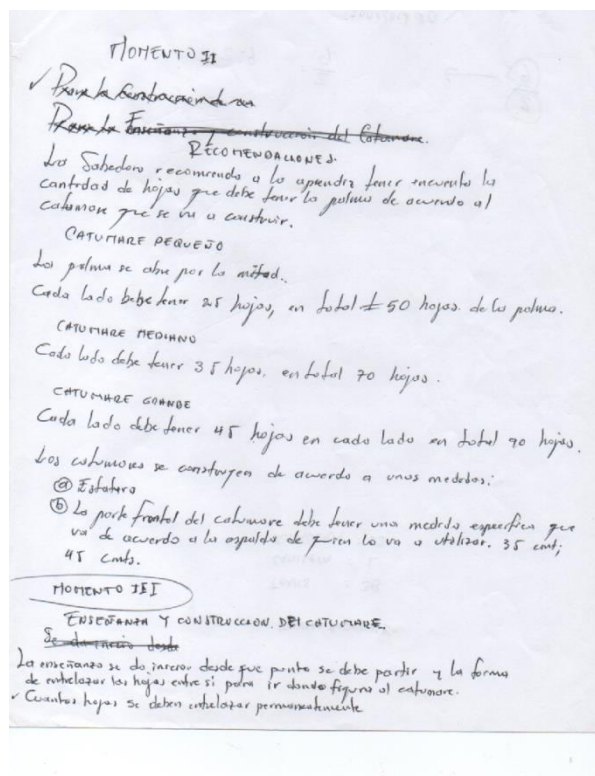 MOMENTO II
✓ Para la Construccion de un
Para la Enseñanza y construccion del Catumare.
RECOMENDACIONES.
La Sabedora recomienda a la aprendiz tener encuenta la
cantidad de hojas que debe tener la palma de acuerdo al
catumare que se va a construir.
CATUMARE PEQUEÑO
La palma se abre por la mitad.
Cada lado bebe tener 25 hojas, en total 50 hojas de la palma.
CATUMARE MEDIANO
Cada lado debe tener 35 hojas, en total 70 hojas.
CATUMARE GRANDE
Cada lado debe tener 45 hojas en cada lado en total 90 hojas.
Los catumares se construyen de acuerdo a unas medidas:
ⓐ Estatura
ⓑ La parte frontal del catumare debe tener una medida especifica que
va de acuerdo a la espalda de quien lo va a utilizar. 35 cmt;
45 cmts.
MOMENTO III
ENSEÑANZA Y CONSTRUCCION DEL CATUMARE.
Se da inicio desde
La enseñanza se da desde que punto se debe partir y la forma
de entrelazar las hojas entre si para ir dando figura al catumare.
✓ Cuantas hojas se deben entrelazar permanentemente